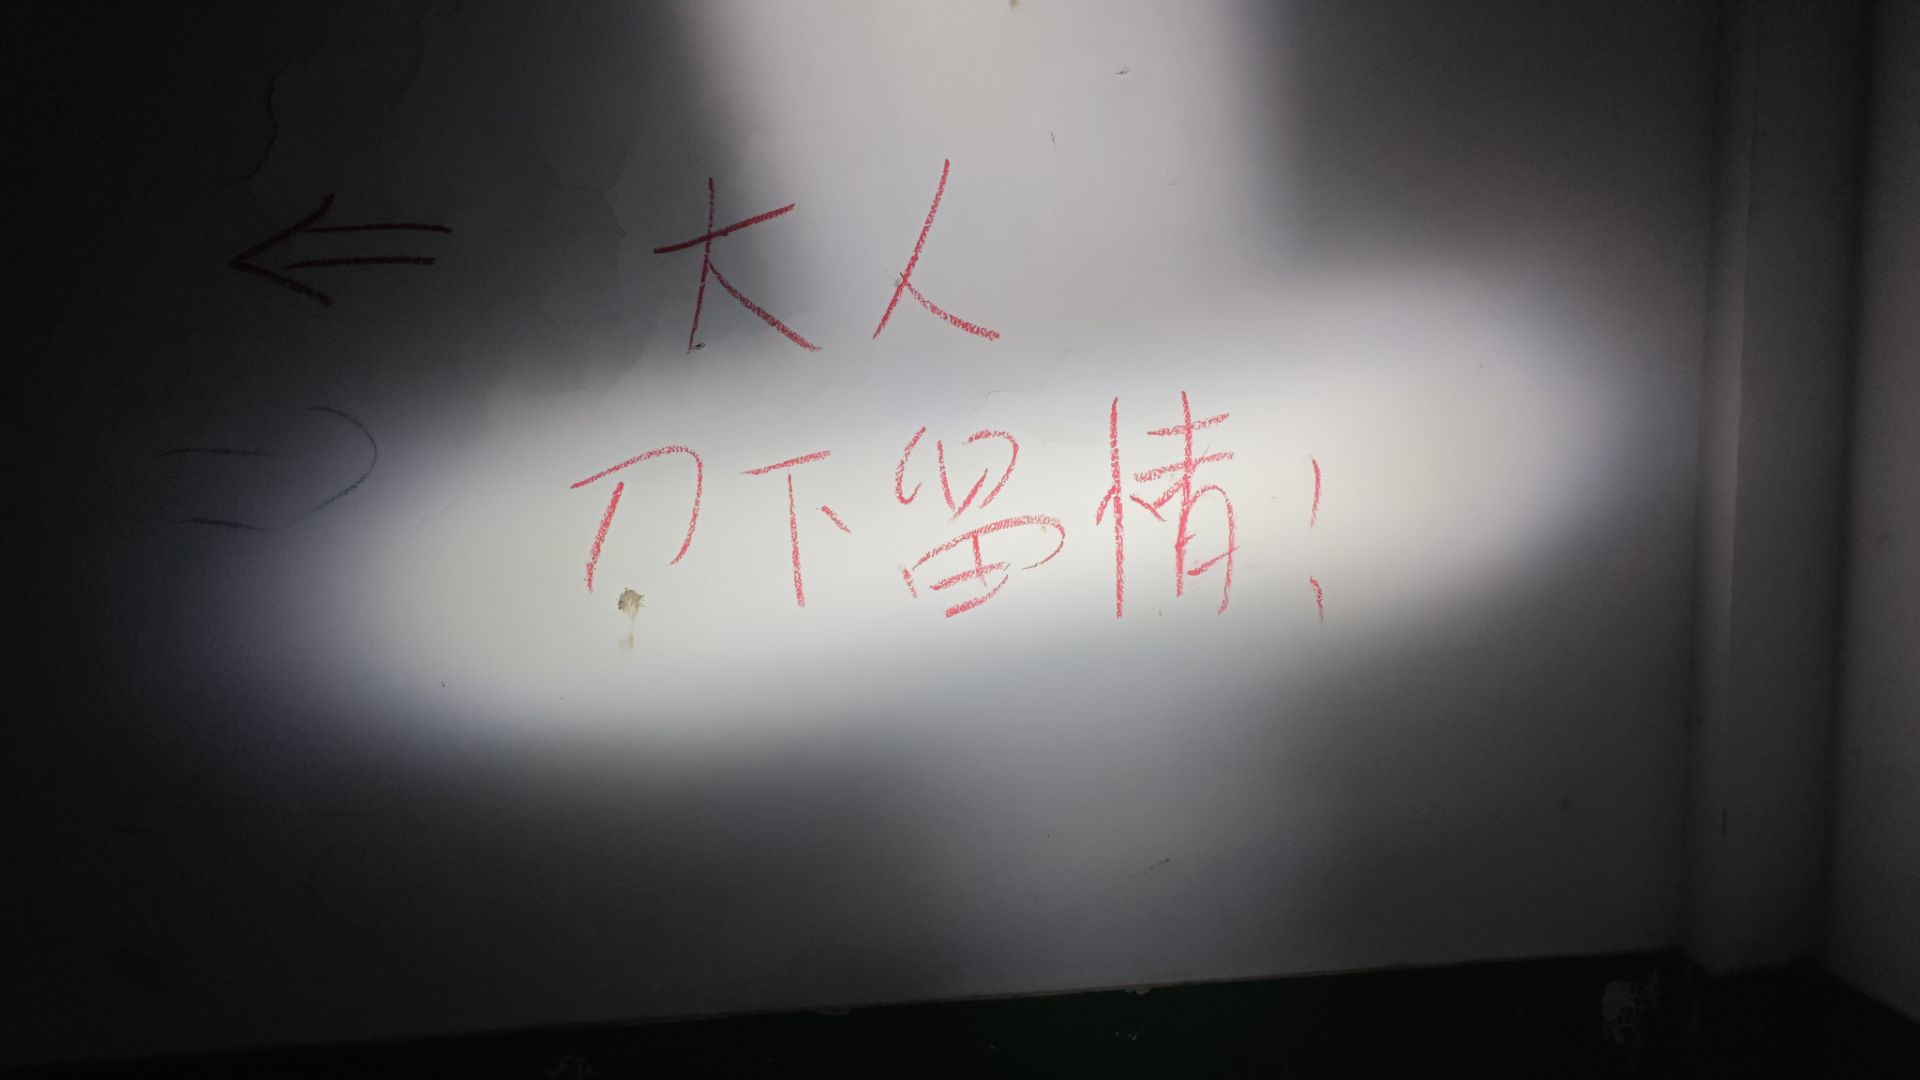 ⇐ 大人
刀下留情!